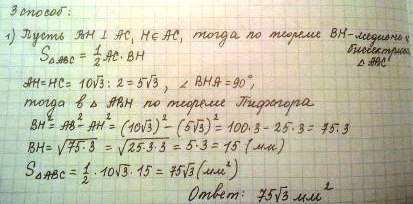 3 способ:
1) Пусть BH ⊥ AC, H∈AC, тогда по теореме BH-медиана и
биссектриса
S△ABC = 1/2 AC · BH
△ABC
AH=HC= 10√3 : 2 = 5√3, ∠BHA = 90°,
тогда в △ ABH по теореме Пифагора
BH² = AB² - AH² = (10√3)² - (5√3)² = 100·3 - 25·3 = 75·3
BH = √75·3 = √25·3·3 = 5·3 = 15 (мм)
S△ABC = 1/2 · 10√3 · 15 = 75√3 (мм²)
Ответ: 75√3 мм²